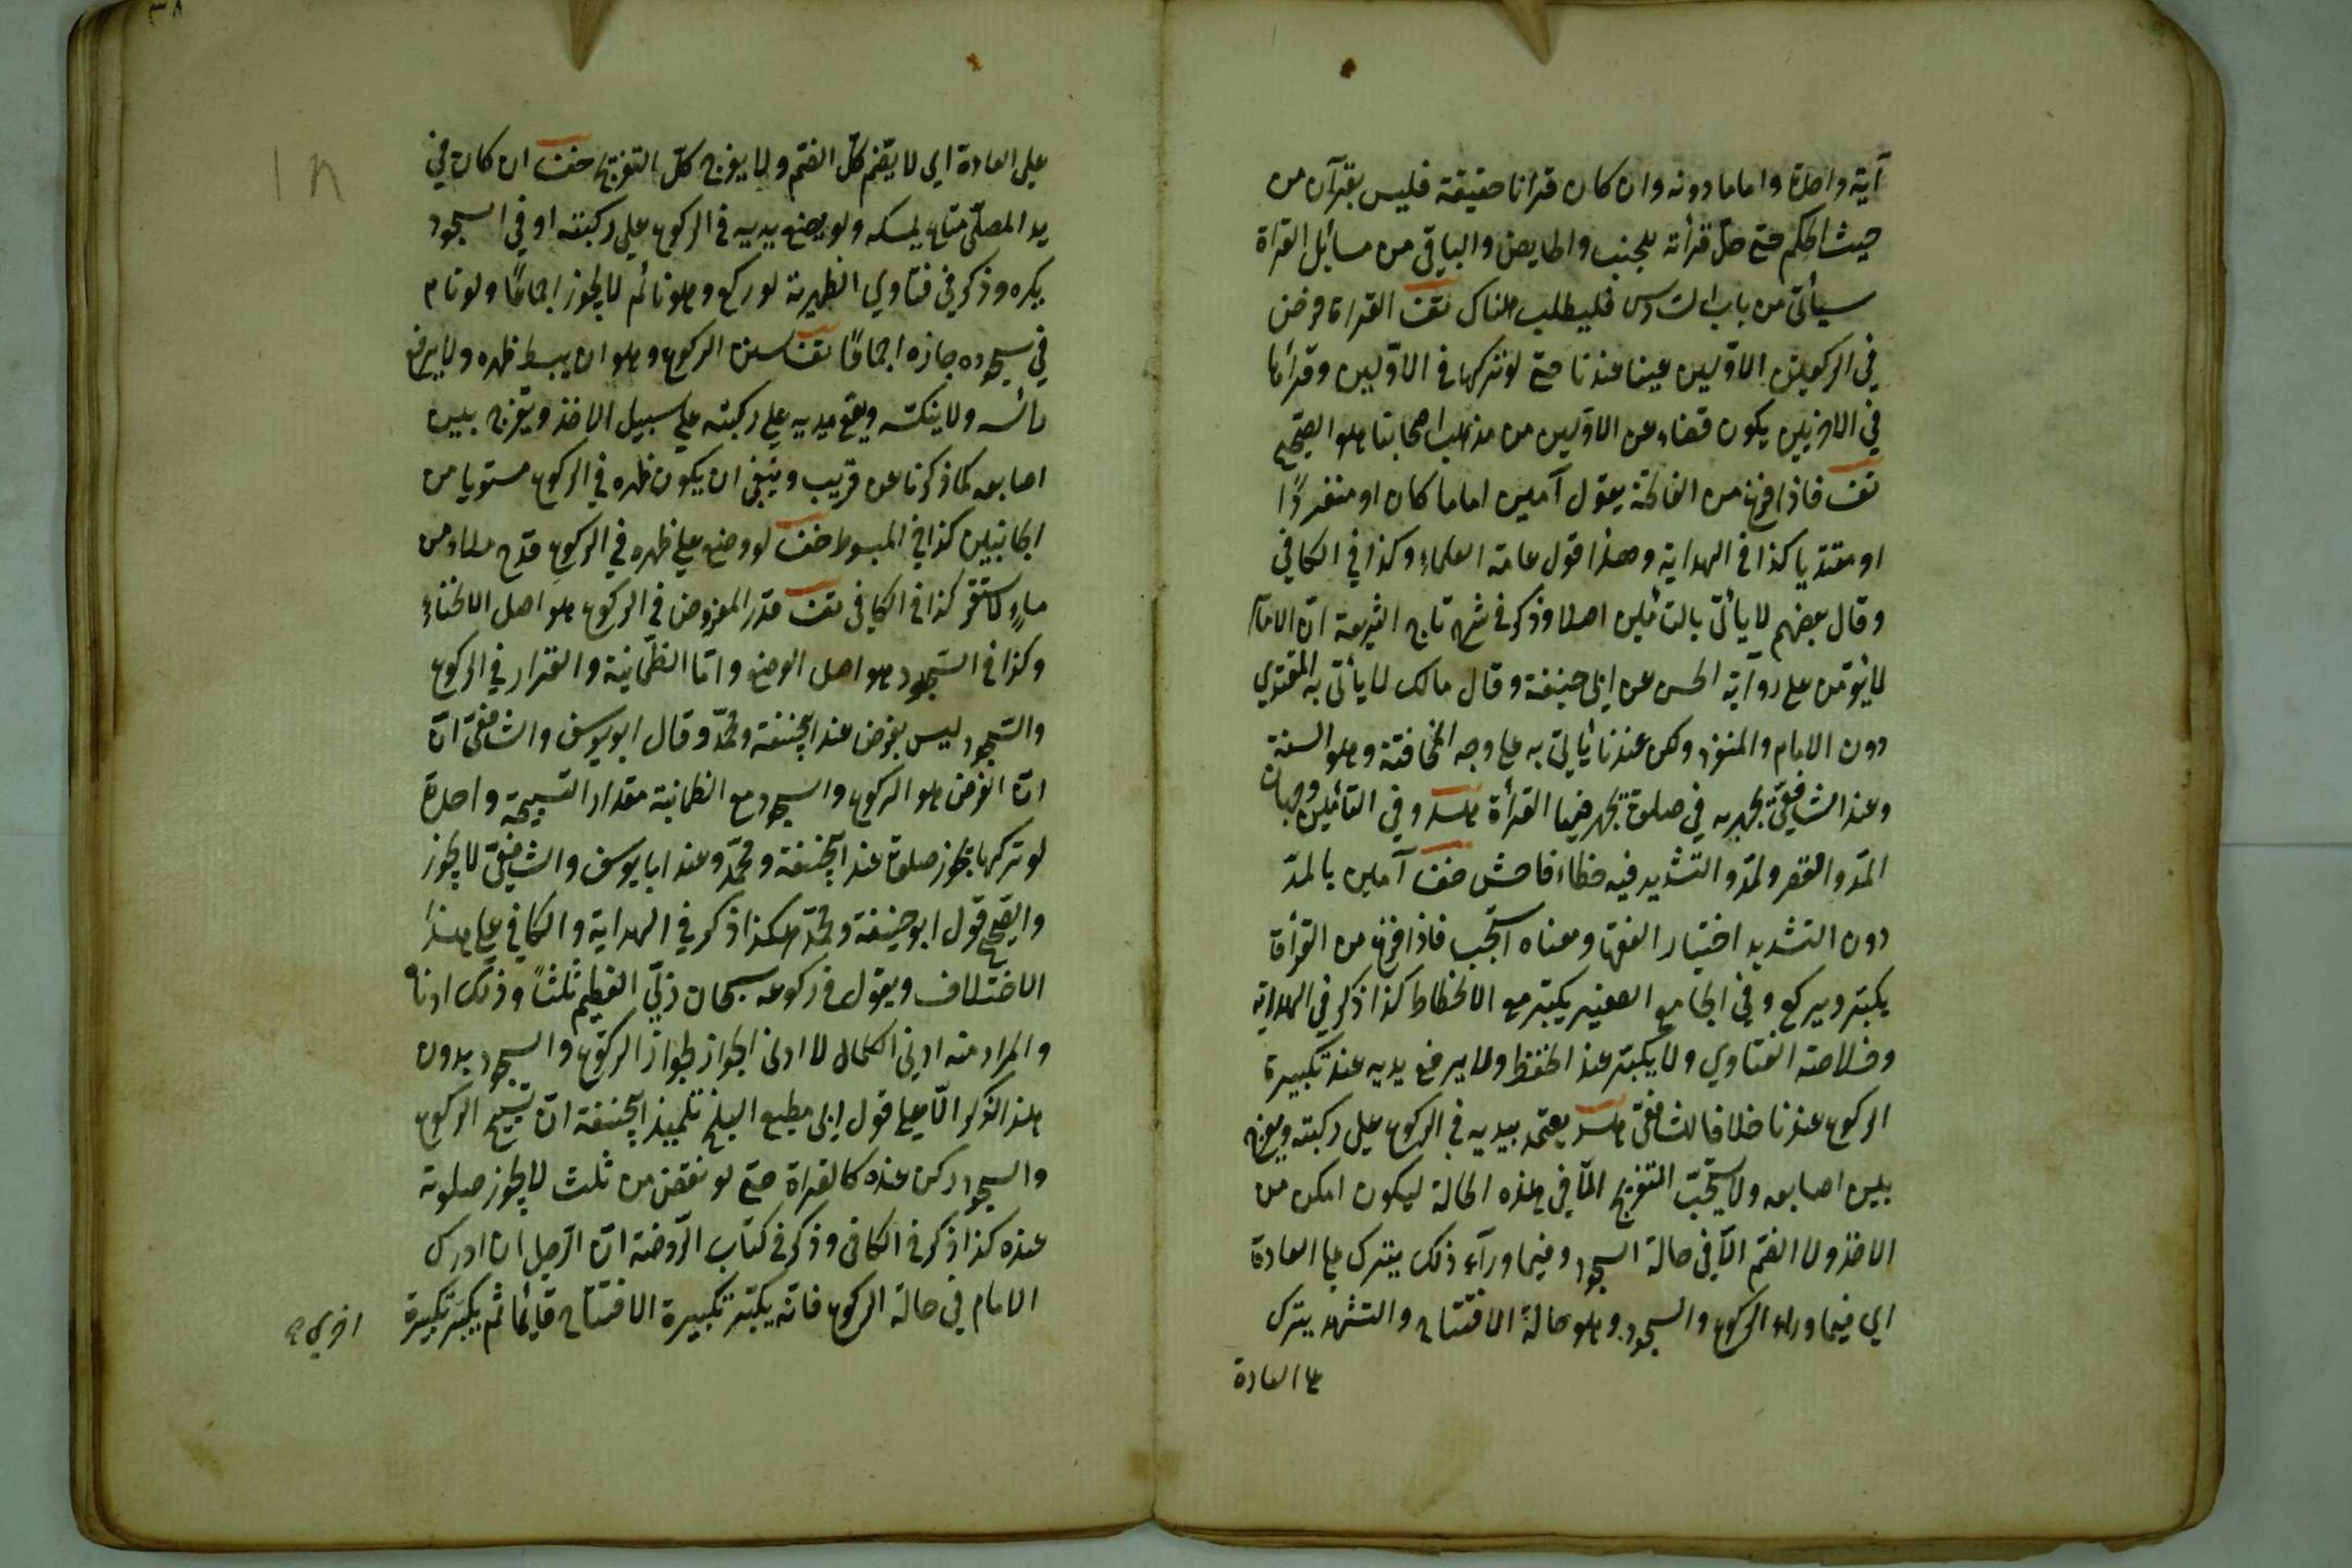 آية واحدة واما ما دونه وان كان قرانا حقيقة فليس بقرآن من
حيث الحكم حتى حل قرأته للجنب والحايض والباقي من مسائل القراة
سيأتي من باب السادس فليطلب هناك تف القراة فرض
في الركعتين الاوليين عينا عندنا حتى لو تركها في الاوليين وقرأها
في الاخريين يكون قضاء عن الاوليين من مذهب اصحابنا هو الصحيح
تف فاذا فرغ من الفاتحة يقول آمين اماما كان او منفردًا
او مقتديا كذا في الهداية وهذا قول عامة العلماء وكذا في الكافي
وقال بعضهم لا يأتي بالتأمين اصلا وذكر في شرح تاج الشريعة ان الامام
لا يؤمن على رواية الحسن عن ابي حنيفة وقال مالك لا يأتي به المقتدي
دون الامام والمنفرد ولكن عندنا يأتي به على وجه المخافتة وهو السنة
وعند الشافعيّ يجهر به في صلوة يجهر فيها القرأة وفي التأمين وجهان
المدّ والقصر ولمدّ والتشديد فيه خطاء فاحش خف آمين بالمدّ
دون التشديد اختيار الفقها ومعناه استجب فاذا فرغ من القرأة
يكبّر ويركع وفي الجامع الصغير يكبّر مع الانحطاط كذا ذكر في الهداية
وخلاصة الفتاوي ولا يكبّر عند الخفظ ولا يرفع يديه عند تكبيرة
الركوع عندنا خلافا لشافعيّ يعتمد بيديه في الركوع على ركبته ويفرج
بين اصابعه ولا يستحبّ التفريج الّا في هذه الحالة ليكون امكن من
الاخذ ولا الضم الّا في حالة السجود وفيما ورآء ذلك يترك على العادة
اي فيما وراء الركوع والسجود وهو حالة الافتتاح والتشهد يترك
على العادة
على العادة اي لا يضم كلّ الضم ولا يفرج كلّ التفريج خف ان كان في
يد المصلّي متاع يمسكه ولو يضع يديه في الركوع على ركبته او في السجود
يكره وذكر في فتاوي الظهيرية لو ركع وهو نائم لا يجوز اجماعًا ولو نام
في سجوده جازه اجماعًا تف سنن الركوع وهو ان يبسط ظهره ولا يرفع
رأسه ولا ينكسه ويضع يديه على ركبته على سبيل الاخذ ويفرج بين
اصابعه كما ذكرنا عن قريب وينبغي ان يكون ظهره في الركوع مستويا من
الجانبين كذا في المبسوط خف لو وضع على ظهره في الركوع قدح مملو من
ماءٍ لاستقر كذا في الكافي تف قدر المفروض في الركوع هو اصل الانحناء
وكذا في السّجود هو اصل الوضع وامّا الطمانية والقرار في الركوع
والسّجود ليس بفرض عند ابيحنيفة ومحمّد وقال ابو يوسف والشافعيّ انّ
انّ الفرض هو الركوع والسجود مع الطمانية مقدار التسبيحة واحدة
لو تركها يجوز صلوة عند ابيحنيفة ومحمّد وعند ابا يوسف والشافعيّ لا يجوز
والصّحيح قول ابو حنيفة ومحمّد هكذا ذكر في الهداية والكافي على هذا
الاختلاف ويقول في ركوعه سبحان ربّي العظيم ثلثًا وذلك ادناه
والمراد منه ادني الكمال لا ادنى الجواز لجواز الركوع والسجود بدون
هذا الذكر الّا على قول ابي مطيع البلخي تلميذ ابيحنيفة انّ تسبيح الركوع
والسجود ركن عنده كالقراة حتى لو نقض من ثلث لا يجوز صلوته
عنده كذا ذكر في الكافي وذكر في كتاب الرّوضة انّ الرّجل ان ادرك
الامام في حالة الركوع فانّه يكبّر تكبيرة الافتتاح قايما ثم يكبّر تكبيرة
اخري